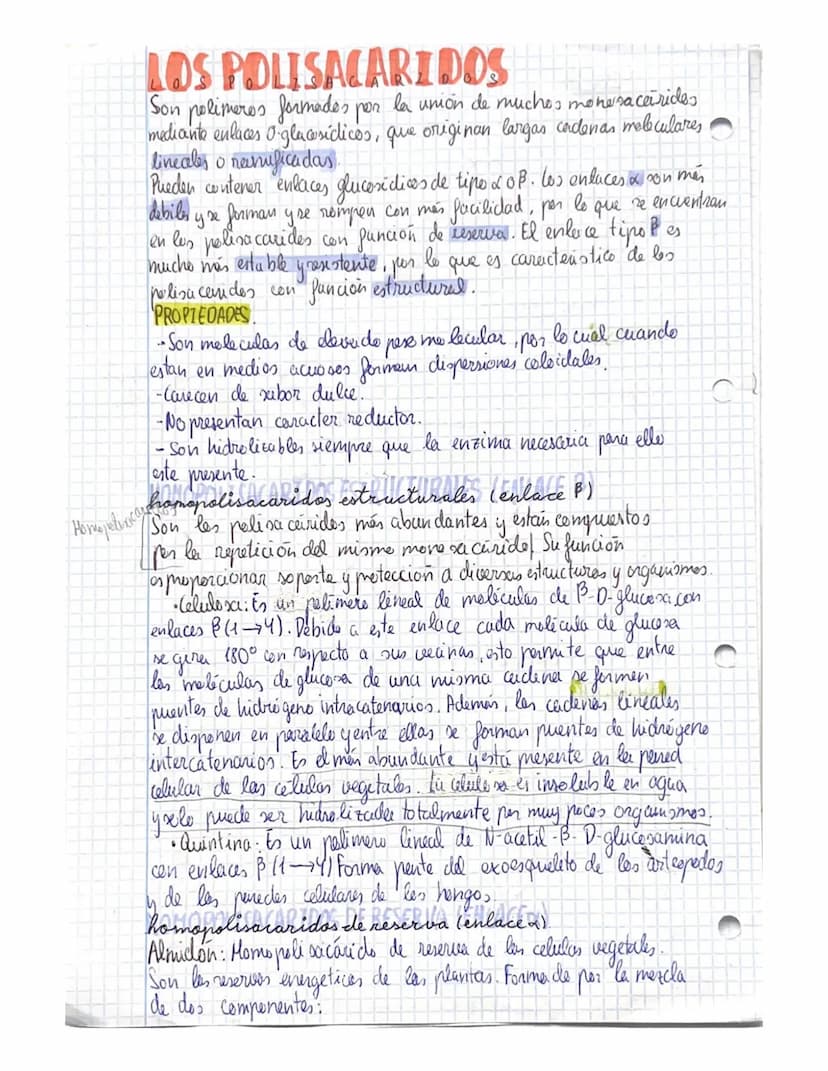 LOS POLISACARIDOS
Son polimeros formados por la unión de muchos monosacáridos
mediante enlaces O-glucosídicos, que originan largas cadenas moleculares
lineales o ramificadas.
Pueden contener enlaces glucosídicos de tipo α o β. Los enlaces α son más
débiles y se forman y se rompen con más facilidad, por lo que se encuentran
en los polisacaridos con función de reserva. El enlace tipo β es
mucho más estable y resistente, por lo que es característico de los
polisacaridos con función estructural.
PROPIEDADES.
- Son moleculas de elevado peso molecular, por lo cual cuando
estan en medios acuosos forman dispersiones coloidales.
- Carecen de sabor dulce.
- No presentan caracter reductor.
- Son hidrolizables siempre que la enzima necesaria para ello
este presente.
homopolisacaridos estructurales (enlace β)
Son los polisacáridos más abundantes y están compuestos
por la repetición del mismo monosacárido. Su función
es proporcionar soporte y protección a diversas estructuras y organismos.
• Celulosa: Es un polímero lineal de moléculas de β-D-glucosa con
enlaces β(1→4). Debido a este enlace cada molécula de glucosa
se gira 180° con respecto a sus vecinas, esto permite que entre
las moléculas de glucosa de una misma cadena se formen
puentes de hidrógeno intracatenarios. Además, las cadenas lineales
se disponen en paralelo y entre ellas se forman puentes de hidrógeno
intercatenarios. Es el más abundante y está presente en la pared
celular de las células vegetales. La celulosa es insoluble en agua
y solo puede ser hidrolizada totalmente por muy pocos organismos.
• Quintina: Es un polímero lineal de N-acetil-β-D-glucosamina
con enlaces β(1→4) Forma parte del exoesqueleto de los artropodos
y de las paredes celulares de los hongos.
homopolisacaridos de reserva (enlace α)
Almidón: Homopolisacárido de reserva de las celulas vegetales.
Son las reservas energeticas de las plantas. Formado por la mezcla
de dos componentes: